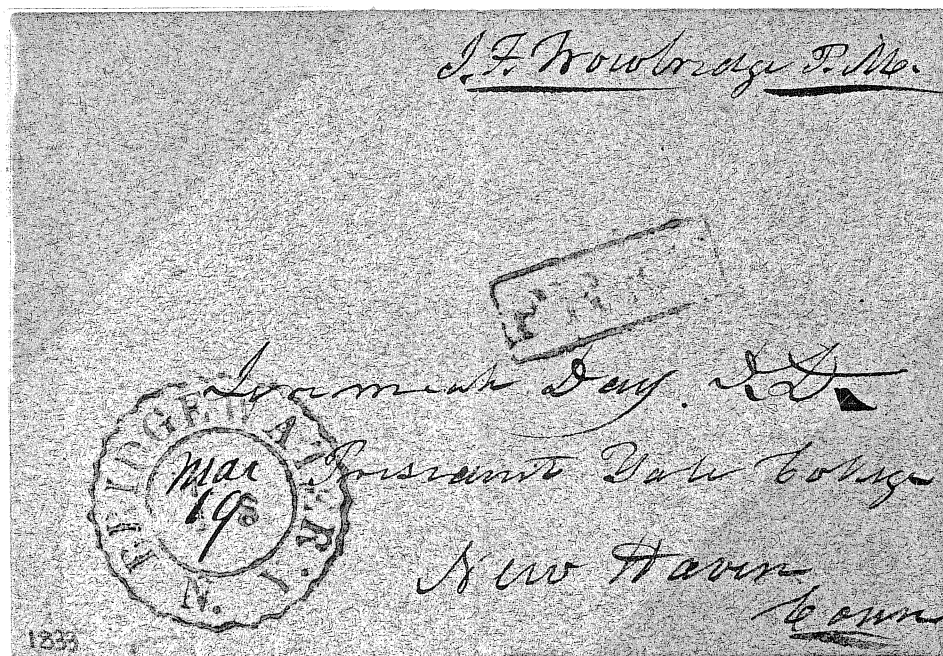 J. F. Trowbridge P.M.
Jeremiah Day. D.D.
President Yale College
New Haven
Conn
BRIDGEWATER. N.
Mar
19
1833